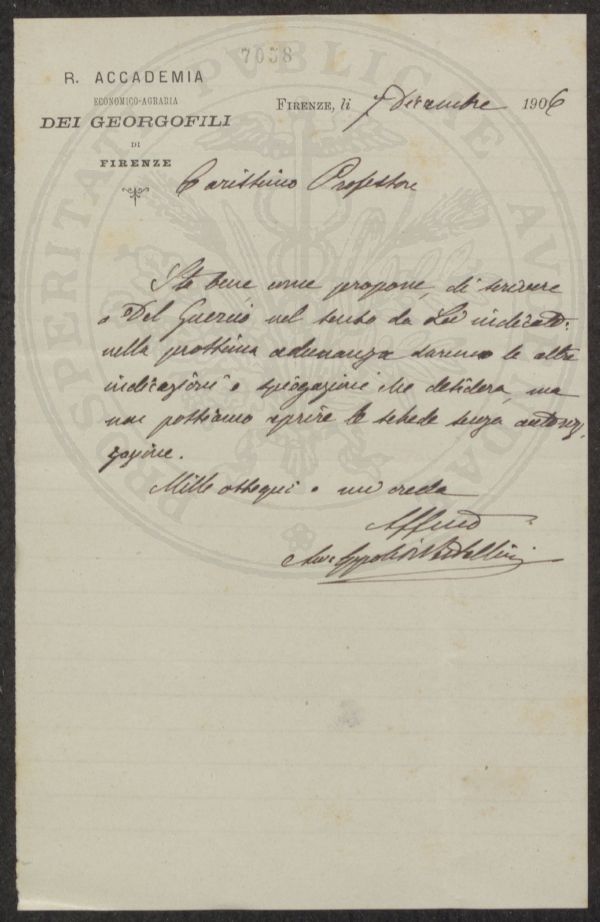 7058
R. ACCADEMIA
ECONOMICO-AGRARIA
DEI GEORGOFILI
DI
FIRENZE
FIRENZE, li 7 Dicembre 1906
PROSPERITATI PVBLICAE AVGENDAE
Carissimo Professore
Sta bene come propone, di scrivere
a Del Guercio nel senso da Lei indicato:
nella prossima adunanza daremo le altre
indicazioni o spiegazioni che desidera, ma
non possiamo aprire le schede senza autoriz
zazione.
Mille ossequi e mi creda
Affmo